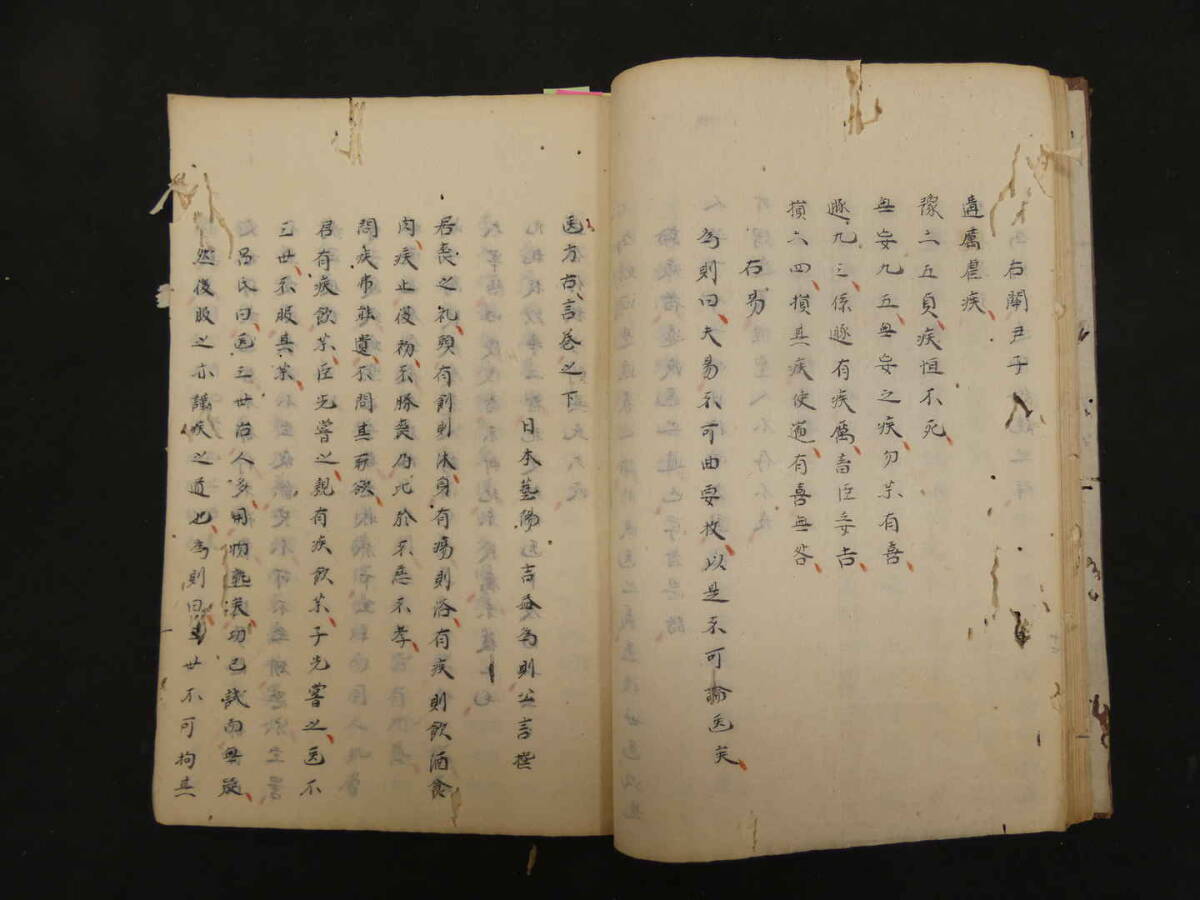 右關尹子
遘厲虐疾
豫二五貞疾恒不死
無妄九五無妄之疾勿薬有喜
遯九三係遯有疾厲畜臣妾吉
損六四損其疾使遄有喜無咎
右易
為則曰夫易不可曲要故以是不可論医矣
医方古言巻之下
日本藝陽医吉益為則公言撰
居喪之礼頭有創則沐身有瘍則浴有疾則飲酒食
肉疾止復初不勝喪乃比於不慈不孝
問疾弗能遺不問其所欲
君有疾飲薬臣先嘗之親有疾飲薬子先嘗之医不
三世不服其薬
呂氏曰医三世治人多用物熟矣功已試而無疑
然後服之亦謹疾之道也為則曰三世不可拘其